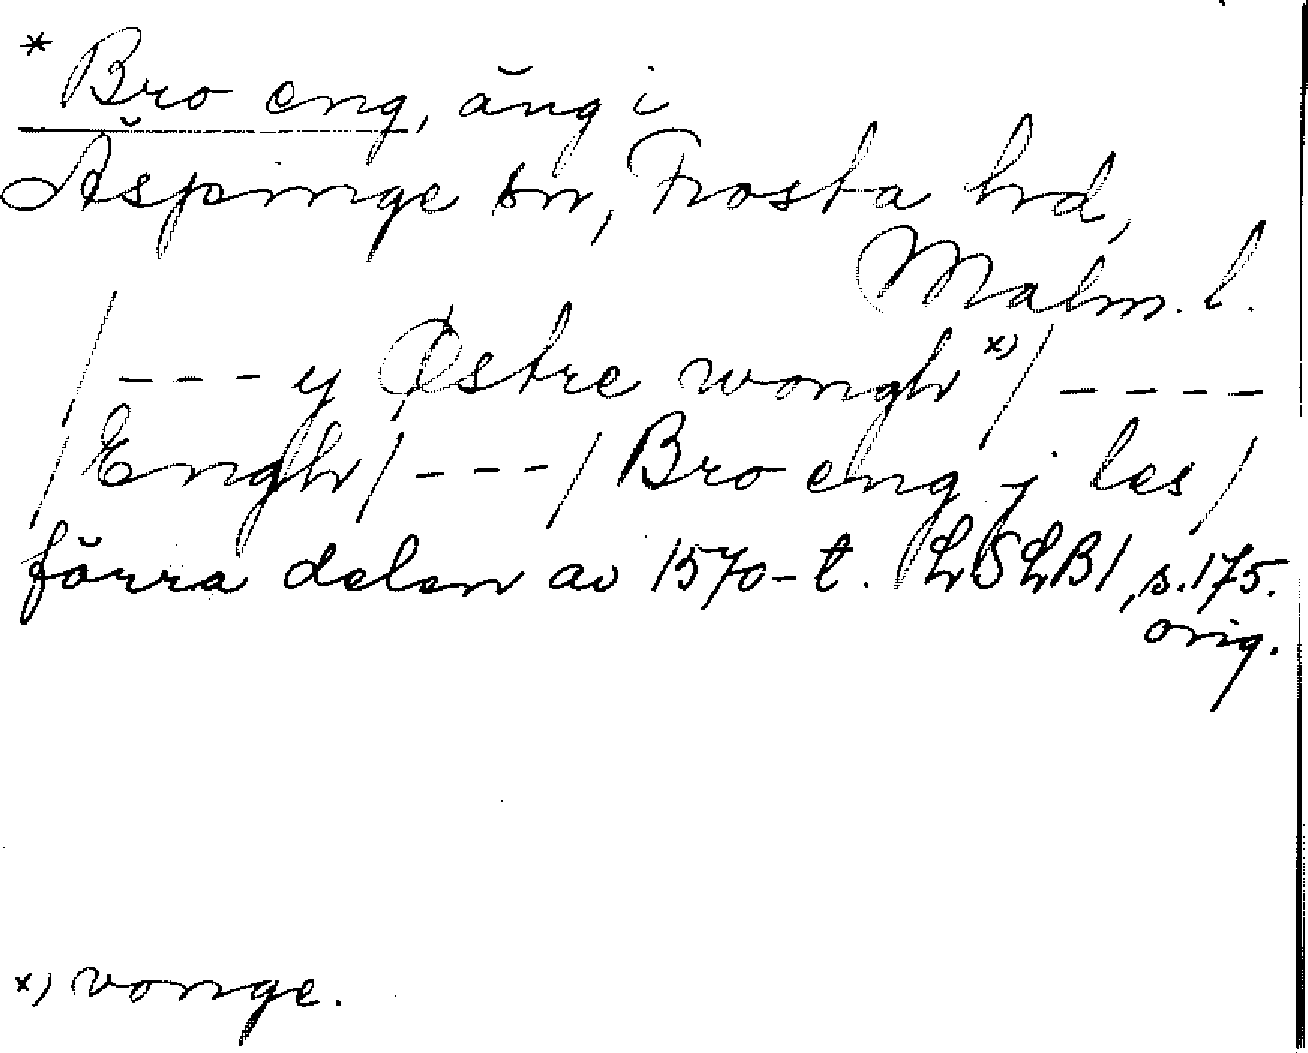 * Bro eng, äng i
Äspinge sn, Frosta hrd,
Malm. l.
/ - - - y Østre wongh x) / - - - -
/ Engh / - - - / Bro eng j les /
förra delen av 1570-t. LSLB1, s. 175.
orig.
x) vonge.